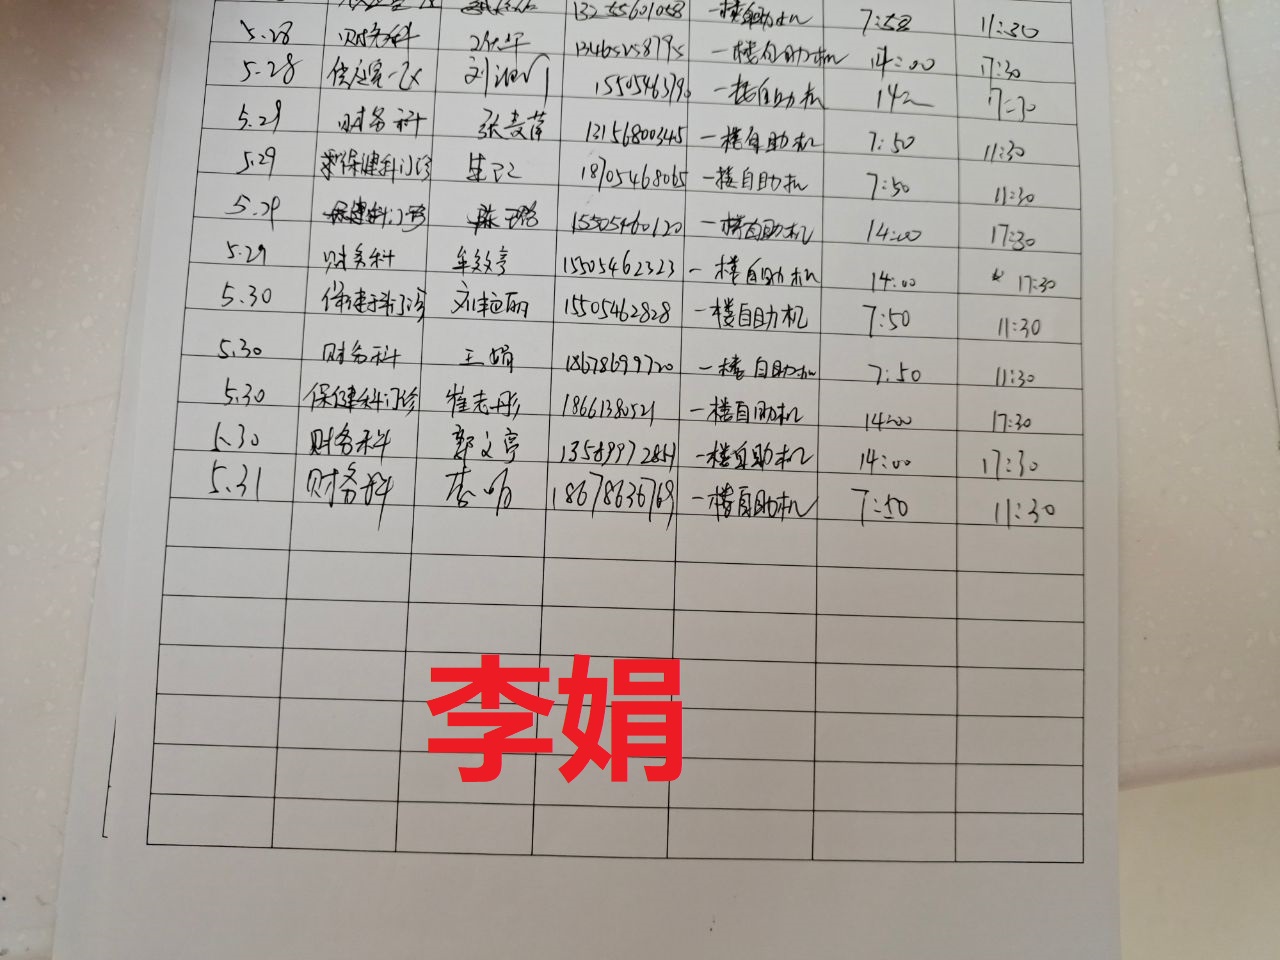 13255601058 一楼自助机 7:50 11:30
5.28 财务科 13465258795 一楼自助机 14:00 17:30
5.28 一楼自助机 17:30
5.29 财务科 13156800345 一楼自助机 7:50 11:30
5.29 保健科门诊 18705468065 一楼自助机 7:50 11:30
5.29 保健科门诊 15505460120 一楼自助机 14:00 17:30
5.29 财务科 牟效亭 15505462323 一楼自助机 14:00 17:30
5.30 保健科门诊 刘艳丽 15505462828 一楼自助机 7:50 11:30
5.30 财务科 王娟 18678699720 一楼自助机 7:50 11:30
5.30 保健科门诊 崔志彤 18661380521 一楼自助机 14:00 17:30
5.30 财务科 郭文亭 一楼自助机 14:00 17:30
5.31 财务科 李娟 18678636769 一楼自助机 7:50 11:30
李娟